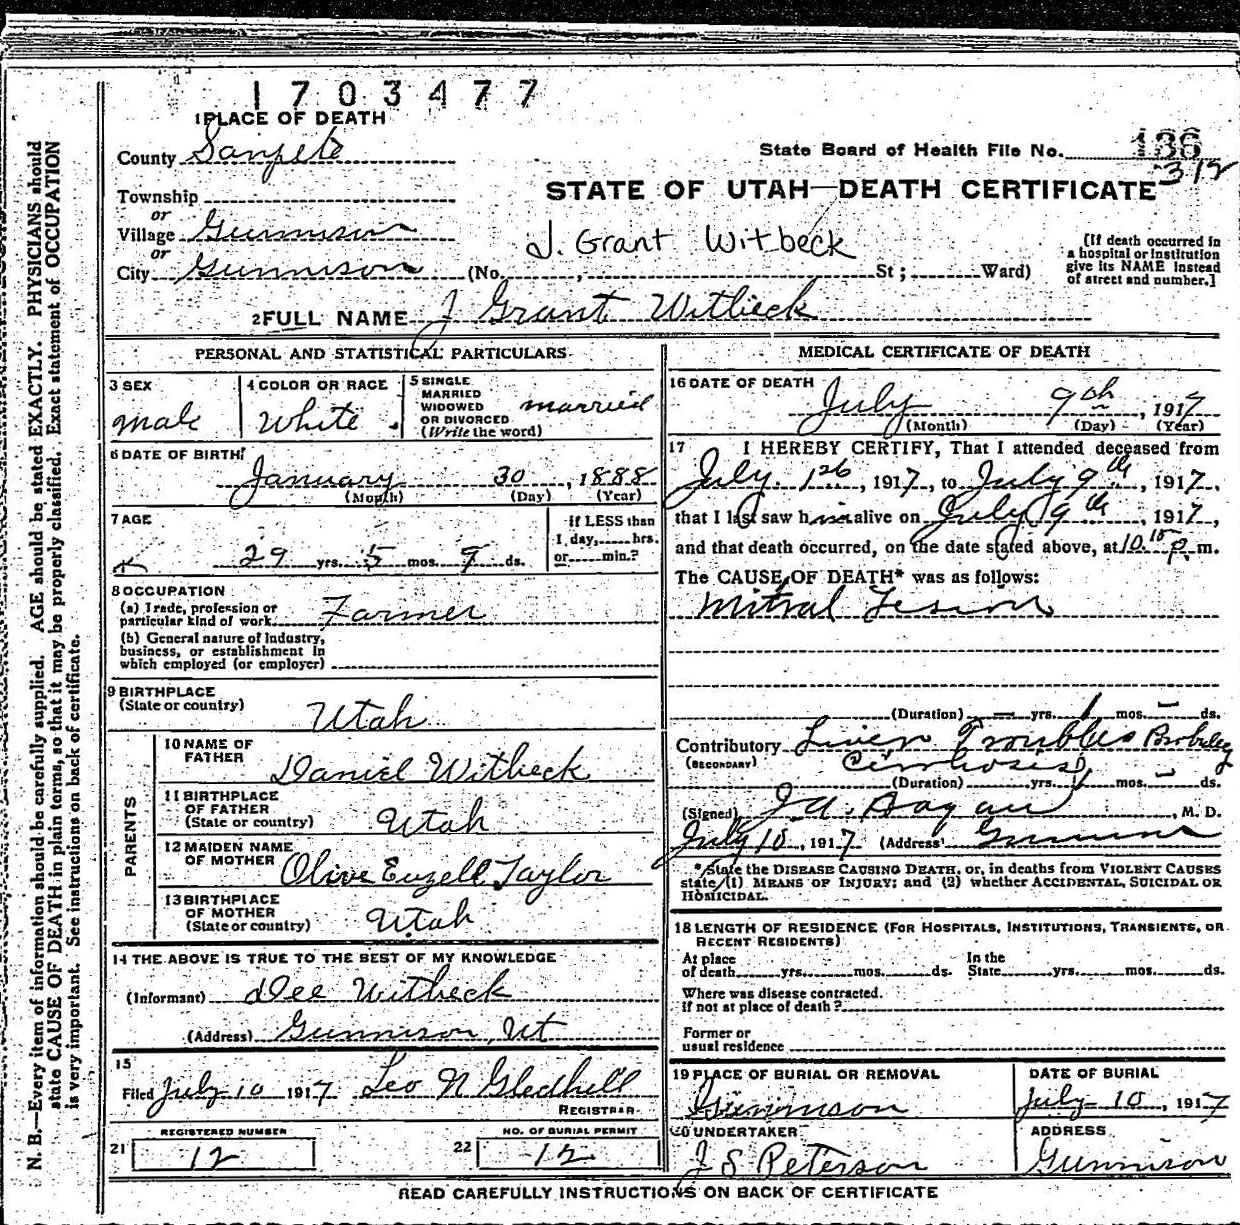 1703477
1 PLACE OF DEATH
County Sanpete
State Board of Health File No. 136
312
Township
or
Village Gunnison
or
City Gunnison (No. , St; Ward)
STATE OF UTAH—DEATH CERTIFICATE
J. Grant Witbeck
[If death occurred in
a hospital or institution
give its NAME instead
of street and number.]
2 FULL NAME J Grant Witbeck
PERSONAL AND STATISTICAL PARTICULARS
3 SEX
male
4 COLOR OR RACE
White
5 SINGLE
MARRIED
WIDOWED
OR DIVORCED
(Write the word)
married
6 DATE OF BIRTH
January 30, 1888
(Month) (Day) (Year)
7 AGE
29 yrs. 5 mos. 9 ds.
If LESS than
1 day, hrs.
or min.?
8 OCCUPATION
(a) Trade, profession or
particular kind of work Farmer
(b) General nature of industry,
business, or establishment in
which employed (or employer)
9 BIRTHPLACE
(State or country)
Utah
PARENTS
10 NAME OF
FATHER
Daniel Witbeck
11 BIRTHPLACE
OF FATHER
(State or country)
Utah
12 MAIDEN NAME
OF MOTHER
Olive Euzell Taylor
13 BIRTHPLACE
OF MOTHER
(State or country)
Utah
14 THE ABOVE IS TRUE TO THE BEST OF MY KNOWLEDGE
(Informant) Dee Witbeck
(Address) Gunnison, Ut
15
Filed July 10 1917 Leo N Gledhill
REGISTRAR
REGISTERED NUMBER
21 12
NO. OF BURIAL PERMIT
22 12
MEDICAL CERTIFICATE OF DEATH
16 DATE OF DEATH
July 9th, 1917
(Month) (Day) (Year)
17 I HEREBY CERTIFY, That I attended deceased from
July 1st, 1917, to July 9th, 1917,
that I last saw him alive on July 9th, 1917,
and that death occurred, on the date stated above, at 10.15 p. m.
The CAUSE OF DEATH* was as follows:
Mitral Lesion
(Duration) — yrs. 1 mos. — ds.
Contributory Liver Troubles Probabley
(SECONDARY) Cirrhosis
(Duration) yrs. 1 mos. — ds.
(Signed) J.A. Hagan, M. D.
July 10, 1917 (Address)
*State the DISEASE CAUSING DEATH, or, in deaths from VIOLENT CAUSES
state (1) MEANS OF INJURY; and (2) whether ACCIDENTAL, SUICIDAL OR
HOMICIDAL.
18 LENGTH OF RESIDENCE (FOR HOSPITALS, INSTITUTIONS, TRANSIENTS, OR
RECENT RESIDENTS)
At place
of death yrs. mos. ds.
In the
State yrs. mos. ds.
Where was disease contracted.
If not at place of death?
Former or
usual residence
19 PLACE OF BURIAL OR REMOVAL
Gunnison
DATE OF BURIAL
July 10, 1917
20 UNDERTAKER
J S Peterson
ADDRESS
Gunnison
READ CAREFULLY INSTRUCTIONS ON BACK OF CERTIFICATE
N. B.—Every item of information should be carefully supplied. AGE should be stated EXACTLY. PHYSICIANS should
state CAUSE OF DEATH in plain terms, so that it may be properly classified. Exact statement of OCCUPATION
is very important. See instructions on back of certificate.